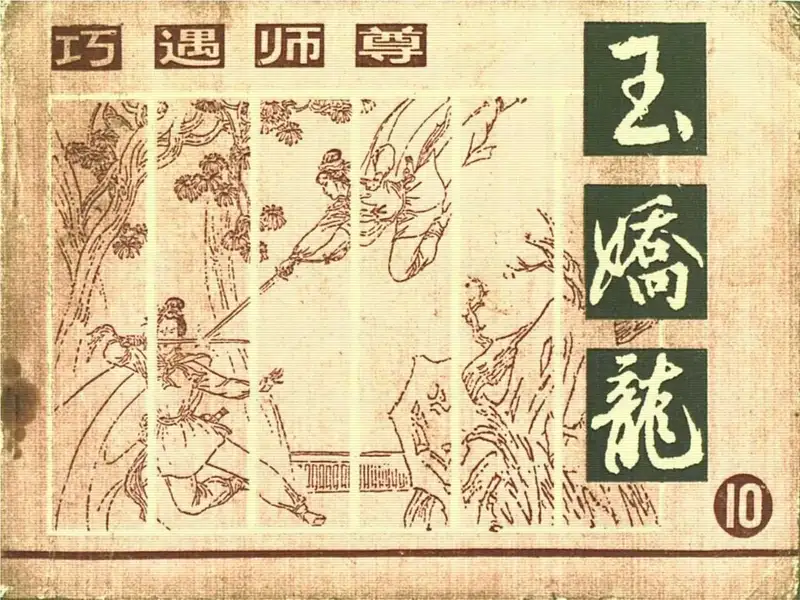 巧遇师尊
玉
嬌
龍
10